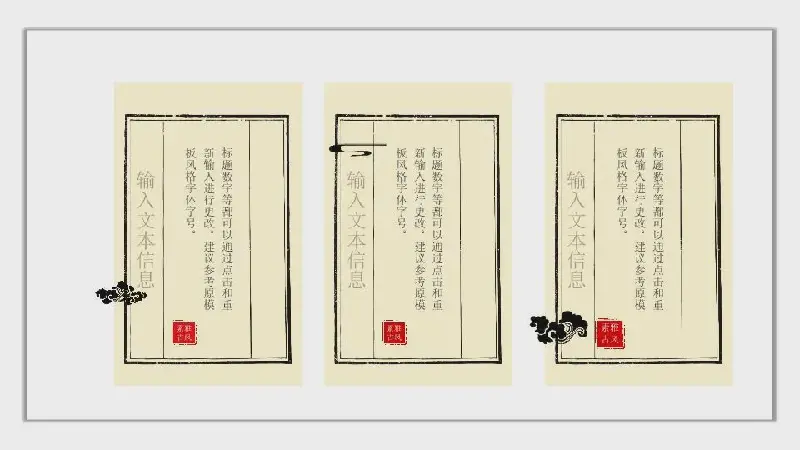 标题数字等都可以通过点击和重
新输入进行更改，建议参考原模
板风格字体字号。
输入文本信息
素雅
古风
标题数字等都可以通过点击和重
新输入进行更改，建议参考原模
板风格字体字号。
输入文本信息
素雅
古风
标题数字等都可以通过点击和重
新输入进行更改，建议参考原模
板风格字体字号。
输入文本信息
素雅
古风